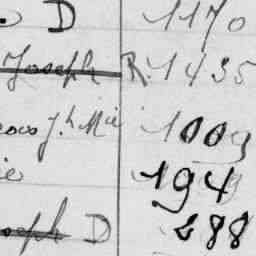 D 1170
Joseph R. 1435
Jh Mie 1009
ie 194
oseph D 288